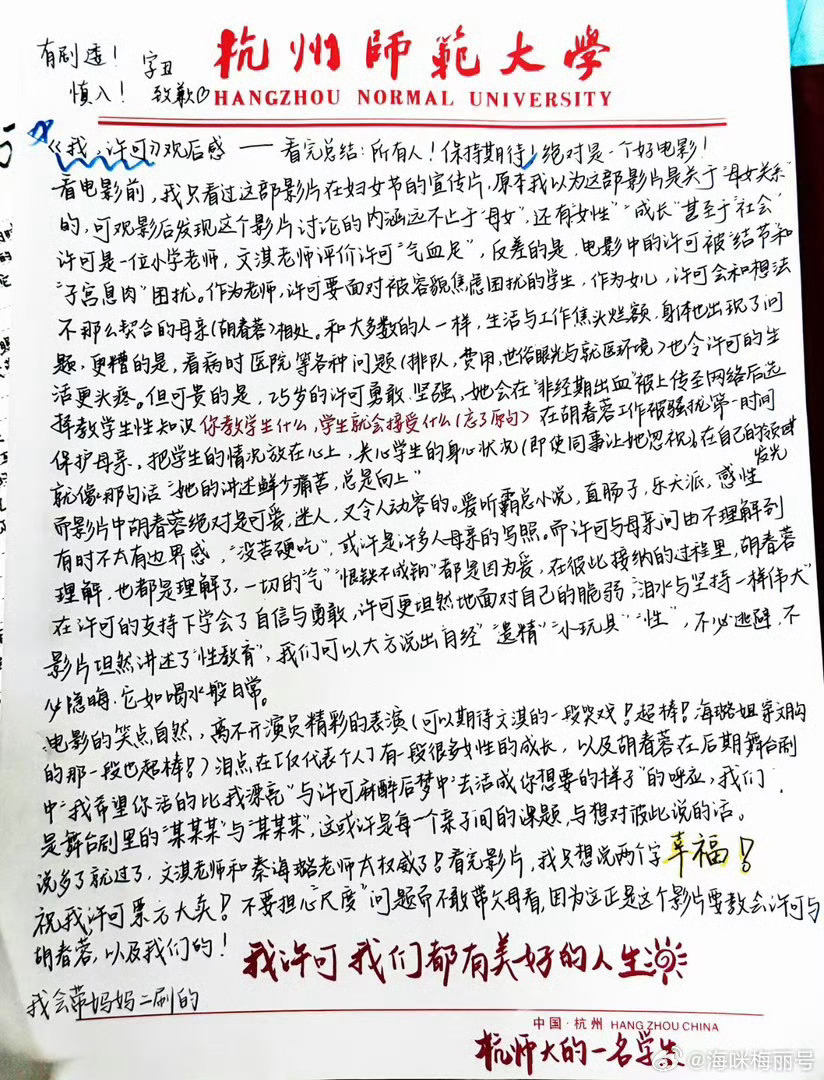 有剧透！
慎入！
字丑
致歉♡
杭州師範大學
HANGZHOU NORMAL UNIVERSITY
《我，许可》观后感 —— 看完总结：所有人！保持期待！绝对是一个好电影！
看电影前，我只看过这部影片在妇女节的宣传片，原本我以为这部影片是关于“母女关系”
的，可观影后发现这个影片讨论的内涵远不止于“母女”，还有“女性”“成长”甚至于“社会”
许可是一位小学老师，文淇老师评价许可“气血足”，反差的是，电影中的许可被“结节和
“子宫息肉”困扰。作为老师，许可要面对被容貌焦虑困扰的学生，作为女儿，许可会和想法
不那么契合的母亲（胡春蓉）相处。和大多数的人一样，生活与工作焦头烂额，身体也出现了问
题，更糟的是，看病时医院等各种问题（排队，费用，世俗眼光与就医环境）也令许可的生
活更头疼。但可贵的是，25岁的许可勇敢、坚强，她会在“非经期出血”被上传至网络后选
择教学生性知识 你教学生什么，学生就会接受什么（忘了原句） 在胡春蓉工作被骚扰第一时间
保护母亲，把学生的情况放在心上，关心学生的身心状况（即使同事让她忽视），在自己的领域
发光
就像那句话“她的讲述鲜少痛苦，总是向上”
而影片中胡春蓉绝对是可爱，迷人，又令人动容的。爱听霸总小说，直肠子，乐天派，感性
有时不太有边界感，“没苦硬吃”，或许是许多人母亲的写照。而许可与母亲间由不理解到
理解，也都是理解了，一切的“气”“恨铁不成钢”都是因为爱，在彼此接纳的过程里，胡春蓉
在许可的支持下学会了自信与勇敢，许可更坦然地面对自己的脆弱，“泪水与坚持一样伟大”
影片坦然讲述了“性教育”，我们可以大方说出“月经”“遗精”“小玩具”“性”，不必逃避，不
必隐晦，它如喝水般日常。
电影的笑点自然，离不开演员精彩的表演（可以期待文淇的一段哭戏！超棒！海璐姐亲文胸
的那一段也超棒！）泪点在[仅代表个人]有一段很多女性的成长，以及胡春蓉在后期舞台剧
中“我希望你活的比我漂亮”与许可麻醉后梦中“去活成你想要的样子”的呼应，我们
是舞台剧里的“某某某”与“某某某”，这或许是每一个亲子间的课题，与想对彼此说的话。
说多了就过了，文淇老师和秦海璐老师太权威了！看完影片，我只想说两个字 幸福！
祝我许可票房大卖！不要担心“尺度”问题而不敢带父母看，因为这正是这个影片要教会许可与
胡春蓉，以及我们的！
我许可 我们都有美好的人生
我会带妈妈二刷的
中国·杭州 HANG ZHOU CHINA
杭师大的一名学生
@海咪梅丽号